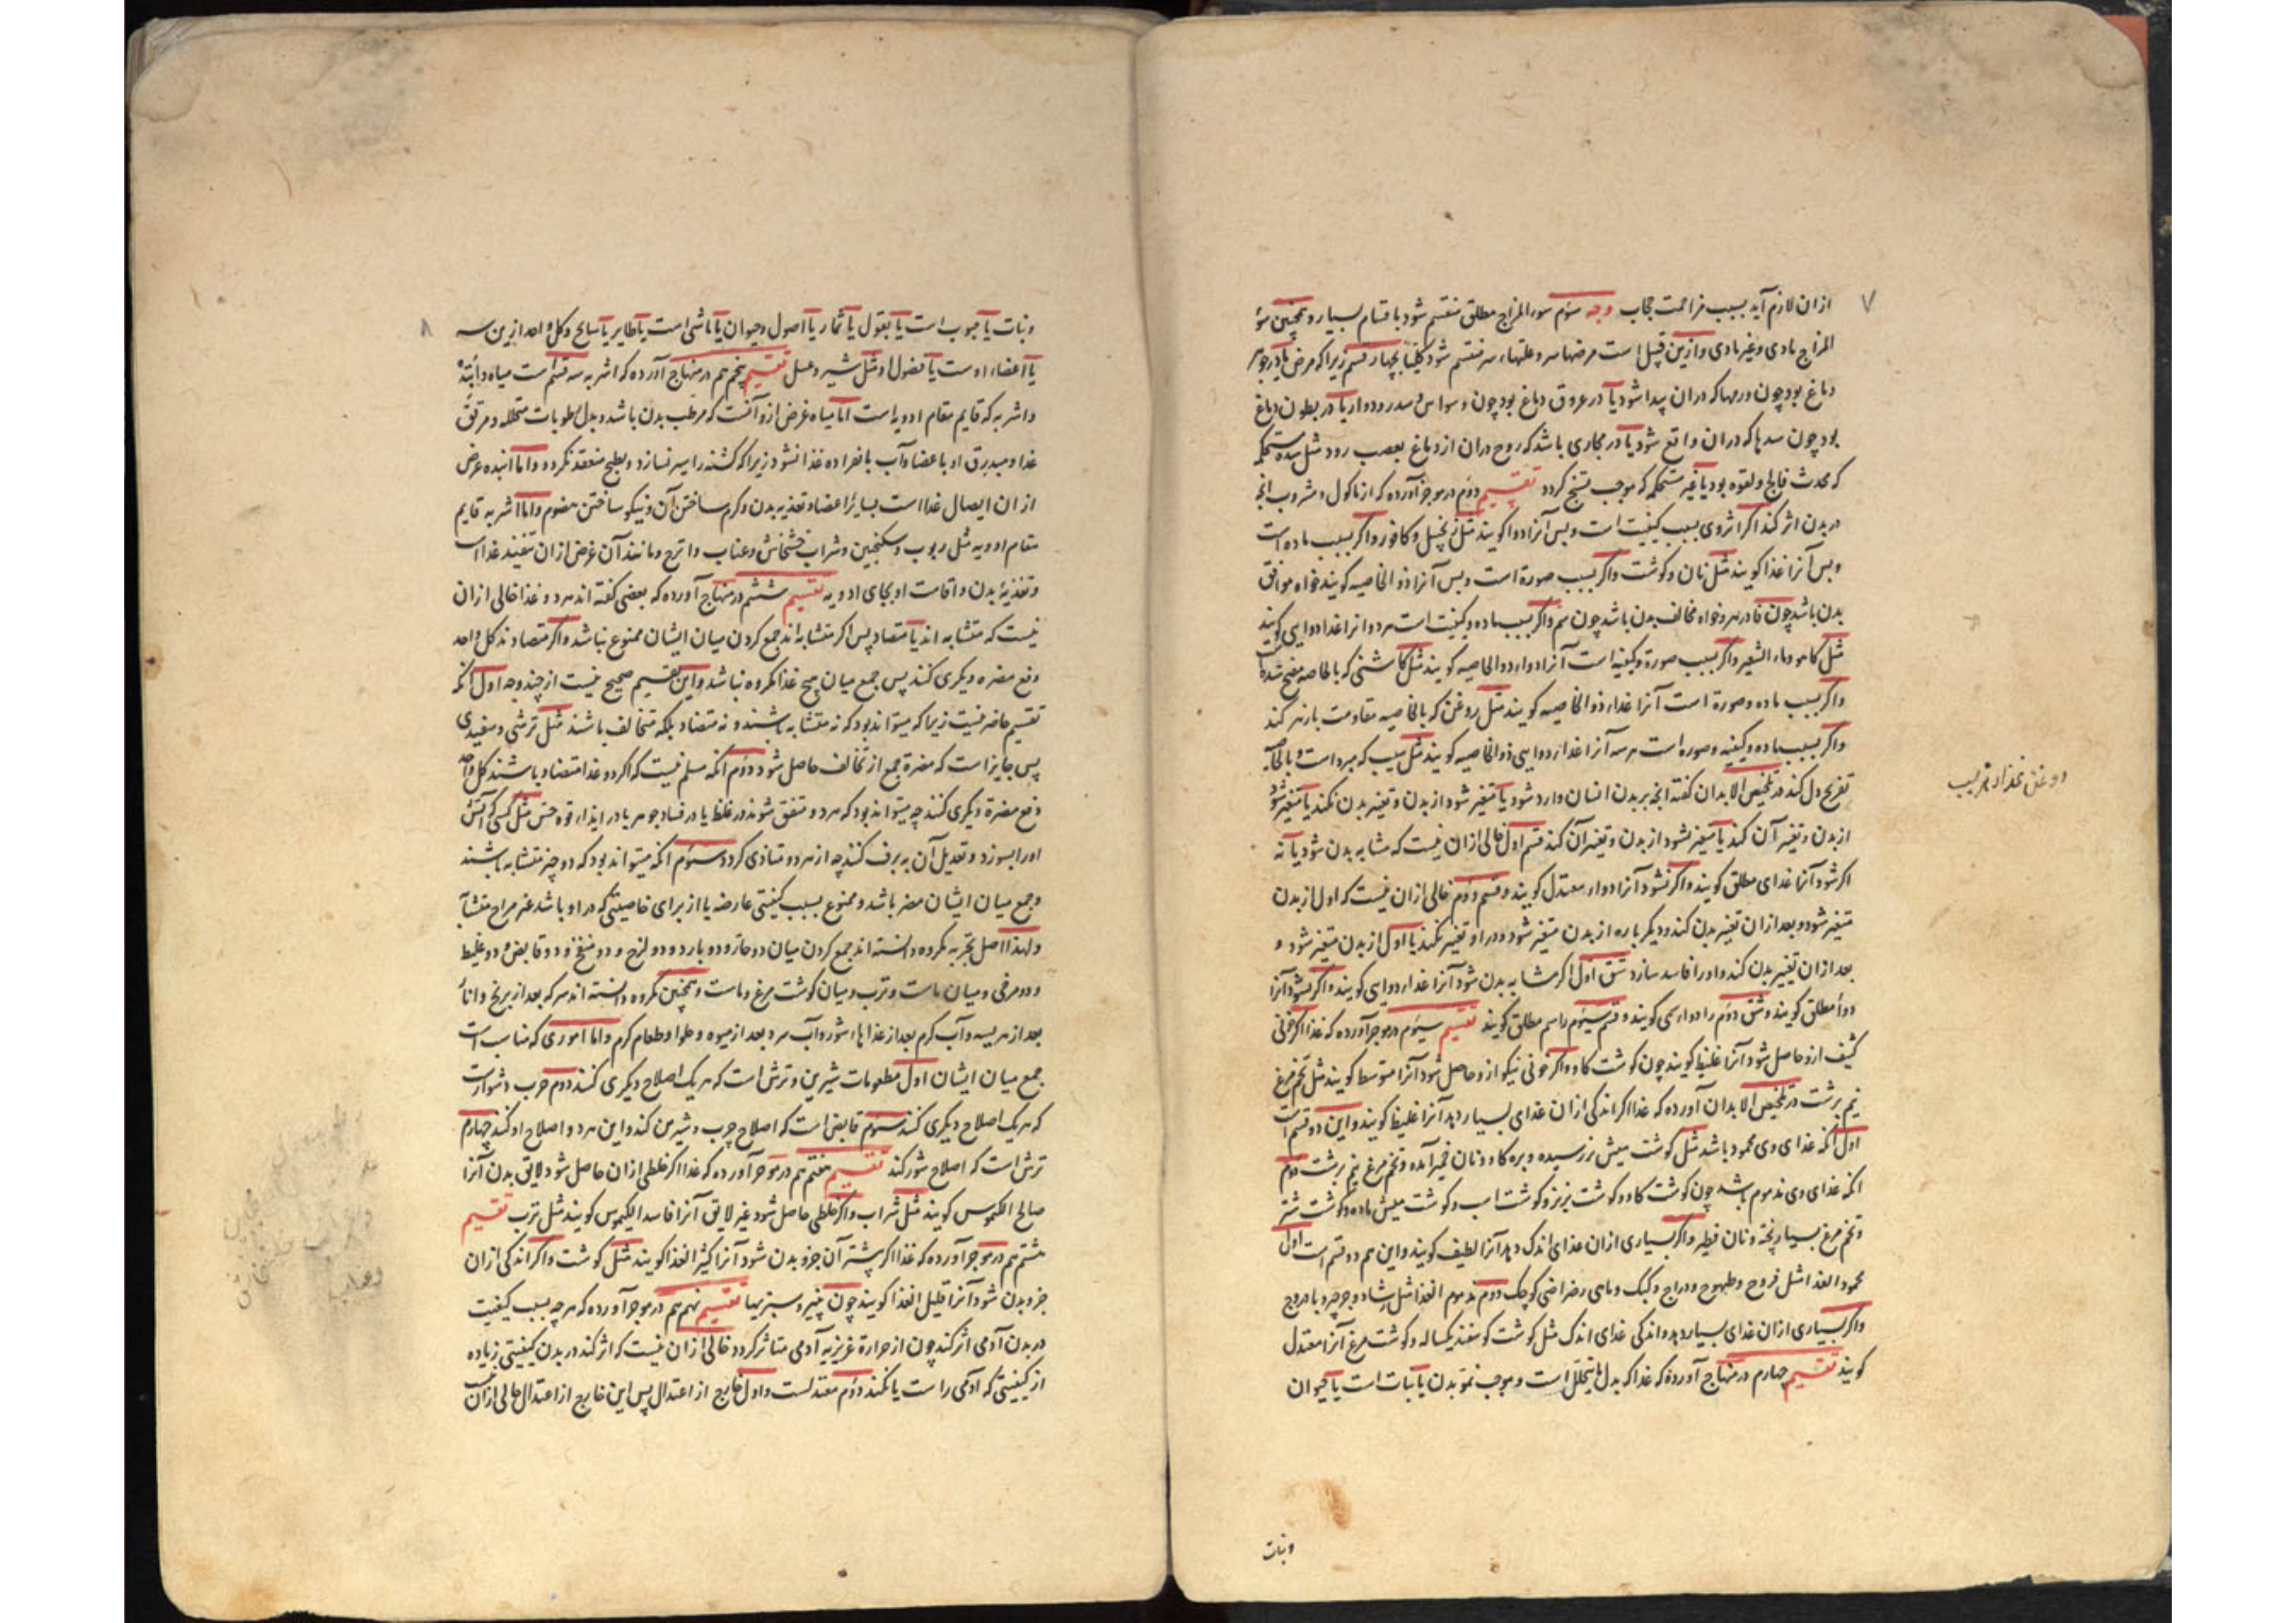 ۷
ازان لازم آید بسبب مزاحمت حجاب وجه سوم سوء المزاج مطلق منقسم شود باقسام بسیار و همچنین سوء
المزاج مادی و غیر مادی و ازین قبیل است مرضهای سر و علتهاء سر منقسم شود کلیا بچهار قسم زیرا که مرض یا در جوهر
دماغ بود چون ورمها که دران پیدا شود یا در عروق دماغ بود چون وسواس و سدر و دوار یا در بطون دماغ
بود چون سدها که دران واقع شود یا در مجاری باشد که روح دران از دماغ بعصب رود مثل سده مستحکمه
که محدث فالج و لقوه بود یا غیر مستحکمه که موجب تشنج کردد تقسیم دوم در موجز آورده که از ماکول و مشروب انچه
در بدن اثر کند اکر اثر وی بسبب کیفیت است و بس آنرا دوا کویند مثل زنجبیل و کافور و اکر بسبب ماده است
و بس آنرا غذا کویند مثل نان و کوشت و اکر بسبب صورة است و بس آنرا ذو الخاصیه کویند خواه موافق
بدن باشد چون فادزهر و خواه مخالف بدن باشد چون سم و اکر بسبب ماده و کیفیت است هر دو انرا غذا دوایی کویند
مثل کاهو و ماء الشعیر و اکر بسبب صورة و کیفیه است آنرا دواء ذو الخاصیه کویند مثل کاشنی که بالخاصه مفتح سده
و اکر بسبب ماده و صورة است آنرا غذاء ذو الخاصیه کویند مثل روغن که بالخاصیه مقاومت با زهر کند
و اکر بسبب ماده و کیفیه و صوره است هر سه آنرا غذاء دوایی ذو الخاصیه کویند مثل سیب که مبرد است و بالخاصه
تفریح دل کند در تلخیص الابدان کفته انچه بر بدن انسان وارد شود یا متغیر شود از بدن و تغییر بدن نکند یا متغیر شود
از بدن و تغییر آن کند یا متغیر نشود از بدن و تغییر آن کند قسم اول خالی ازان نیست که مشابه بدن شود یا نه
اکر شود آنرا غذای مطلق کویند و اکر نشود آنرا دواء معتدل کویند و قسم دوم خالی ازان نیست که اول از بدن
متغیر شود و بعد ازان تغییر بدن کند و دیکر باره از بدن متغیر شود و در او تغییر نکند یا اول از بدن متغیر شود و
بعد ازان تغییر بدن کند و او را فاسد سازد شق اول اکر مشابه بدن شود آنرا غذاء دوای کویند و اکر نشود آنرا
دواء مطلق کویند و شق دوم را دواء سمی کویند و قسم سیوم را سم مطلق کویند تقسیم سیوم در موجز آورده که غذا اکر خونی
کثیف ازو حاصل شود آنرا غلیظ کویند چون کوشت کاو و اکر خونی نیکو ازو حاصل شود آنرا متوسط کویند مثل تخم مرغ
نیم برشت در تلخیص الابدان آورده که غذا اکر اندکی ازان غذای بسیار دهد آنرا غلیظ کویند و این دو قسم است
اول انکه غذای وی محمود باشد مثل کوشت میش نر رسیده و بره کاو و نان خمیر آمده و تخم مرغ نیم برشت دوم
انکه غذای وی مذموم باشد چون کوشت کاو و کوشت بز نر و کوشت اسب و کوشت میش ماده و کوشت شتر
و تخم مرغ بسیار پخته و نان فطیر و اکر بسیاری ازان غذای اندک دهد آنرا لطیف کویند و این هم دو قسم است اول
محمود الغذا مثل فروج و طیهوج و دراج و کبک و ماهی رضراضی کوچک دوم مذموم الغذا مثل رشاد و جرجیر و بادروج
و اکر بسیاری ازان غذای بسیار دهد و اندکی غذای اندک مثل کوشت کوسفند یکساله و کوشت مرغ آنرا معتدل
کویند تقسیم چهارم در منهاج آورده که غذا که بدل ما یتحلل است و موجب نمو بدن یا نبات است یا حیوان
و نبات
۸
و نبات یا حبوب است یا بقول یا ثمار یا اصول و حیوان یا ماشی است یا طایر یا سابح و کل واحد ازین سه
یا اعضاء اوست یا فضول او مثل شیر و عسل تقسیم پنجم هم در منهاج آورده که اشربه سه قسم است میاه و انبذه
و اشربه که قایم مقام ادویه است اما میاه غرض ازو آنست که مرطب بدن باشد و بدل رطوبات متحلله و مرقق
غذا و مبدرق او باعضا و آب بانفراده غذا نشود زیرا که کشنه را سیر نسازد و بطبخ منعقد نکردد و اما انبذه غرض
ازان ایصال غذا است بسایر اعضا و تغذیه بدن و کرم ساختن آن و نیکو ساختن هضوم و اما اشربه قایم
مقام ادویه مثل ربوب و سکنجبین و شراب خشخاش و عناب و اترج و مانند آن غرض ازان تنفیذ غذا است
و تغذیه بدن و اقامت او بجای ادویه تقسیم ششم در منهاج آورده که بعضی کفته اند هر دو غذا خالی ازان
نیست که متشابه اند یا متضاد پس اکر متشابه اند جمع کردن میان ایشان ممنوع نباشد و اکر متضادند کل واحد
دفع مضره دیکری کنند پس جمع میان هیچ غذا مکروه نباشد و این تقسیم صحیح نیست از چند وجه اول انکه
تقسیم حاصر نیست زیرا که میتواند بود که نه متشابه باشند و نه متضاد بلکه متخالف باشند مثل ترشی و سفیدی
پس جایز است که مضرة جمع از تخالف حاصل شود دوم انکه مسلم نیست که اکر دو غذا متضاد باشند کل واحد
دفع مضرة دیکری کنند چه میتواند بود که هر دو متفق شوند در غلظ یا در فساد جوهر یا در ایذاء قوه حس مثل کسی که آتش
او را بسوزد و تعدیل آن به برف کنند چه از هر دو متاذی کردد سیوم انکه میتواند بود که دو چیز متشابه باشند
و جمع میان ایشان مضر باشد و ممنوع بسبب کیفیتی عارضه یا از برای خاصیتی که در او باشد
و لهذا اصل تجربه مکروه دانسته اند جمع کردن میان دو حار و دو بارد و دو لزج و دو منفخ و دو قابض و دو غلیظ
و دو مرخی و میان ماست و ترب و میان کوشت مرغ و ماست و همچنین مکروه دانسته اند سرکه بعد از برنج
بعد از هریسه و آب کرم بعد از غذاهاء شور و آب سرد بعد از میوه و حلوا و طعام کرم و اما اموری که مناسب است
جمع میان ایشان اول مطعومات شیرین و ترش است که هر یک اصلاح دیکری کنند دوم چرب و شور است
که هر یک اصلاح دیکری کنند سیوم قابض است که اصلاح چرب و شیرین کند و این هر دو اصلاح او کنند چهارم
ترش است که اصلاح شور کند تقسیم هفتم هم در موجز آورده که غذا اکر خلطی ازان حاصل شود لایق بدن آنرا
صالح الکیموس کویند مثل شراب و اکر خلطی حاصل شود غیر لایق آنرا فاسد الکیموس کویند مثل ترب تقسیم
هشتم هم در موجز آورده که غذا اکر بیشتر آن جزو بدن شود آنرا کثیر الغذا کویند مثل کوشت و اکر اندکی ازان
جزو بدن شود آنرا قلیل الغذا کویند چون پنیر و سبزیها تقسیم نهم هم در موجز آورده که هر چه بسبب کیفیت
در بدن آدمی اثر کند چون از حرارة غریزیه آدمی متاثر کردد خالی ازان نیست که اثر کند در بدن کیفیتی زیاده
از کیفیتی که آدمی راست یا نکند دوم معتدلست و اول خارج از اعتدال پس این خارج از اعتدال خالی ازان نیست